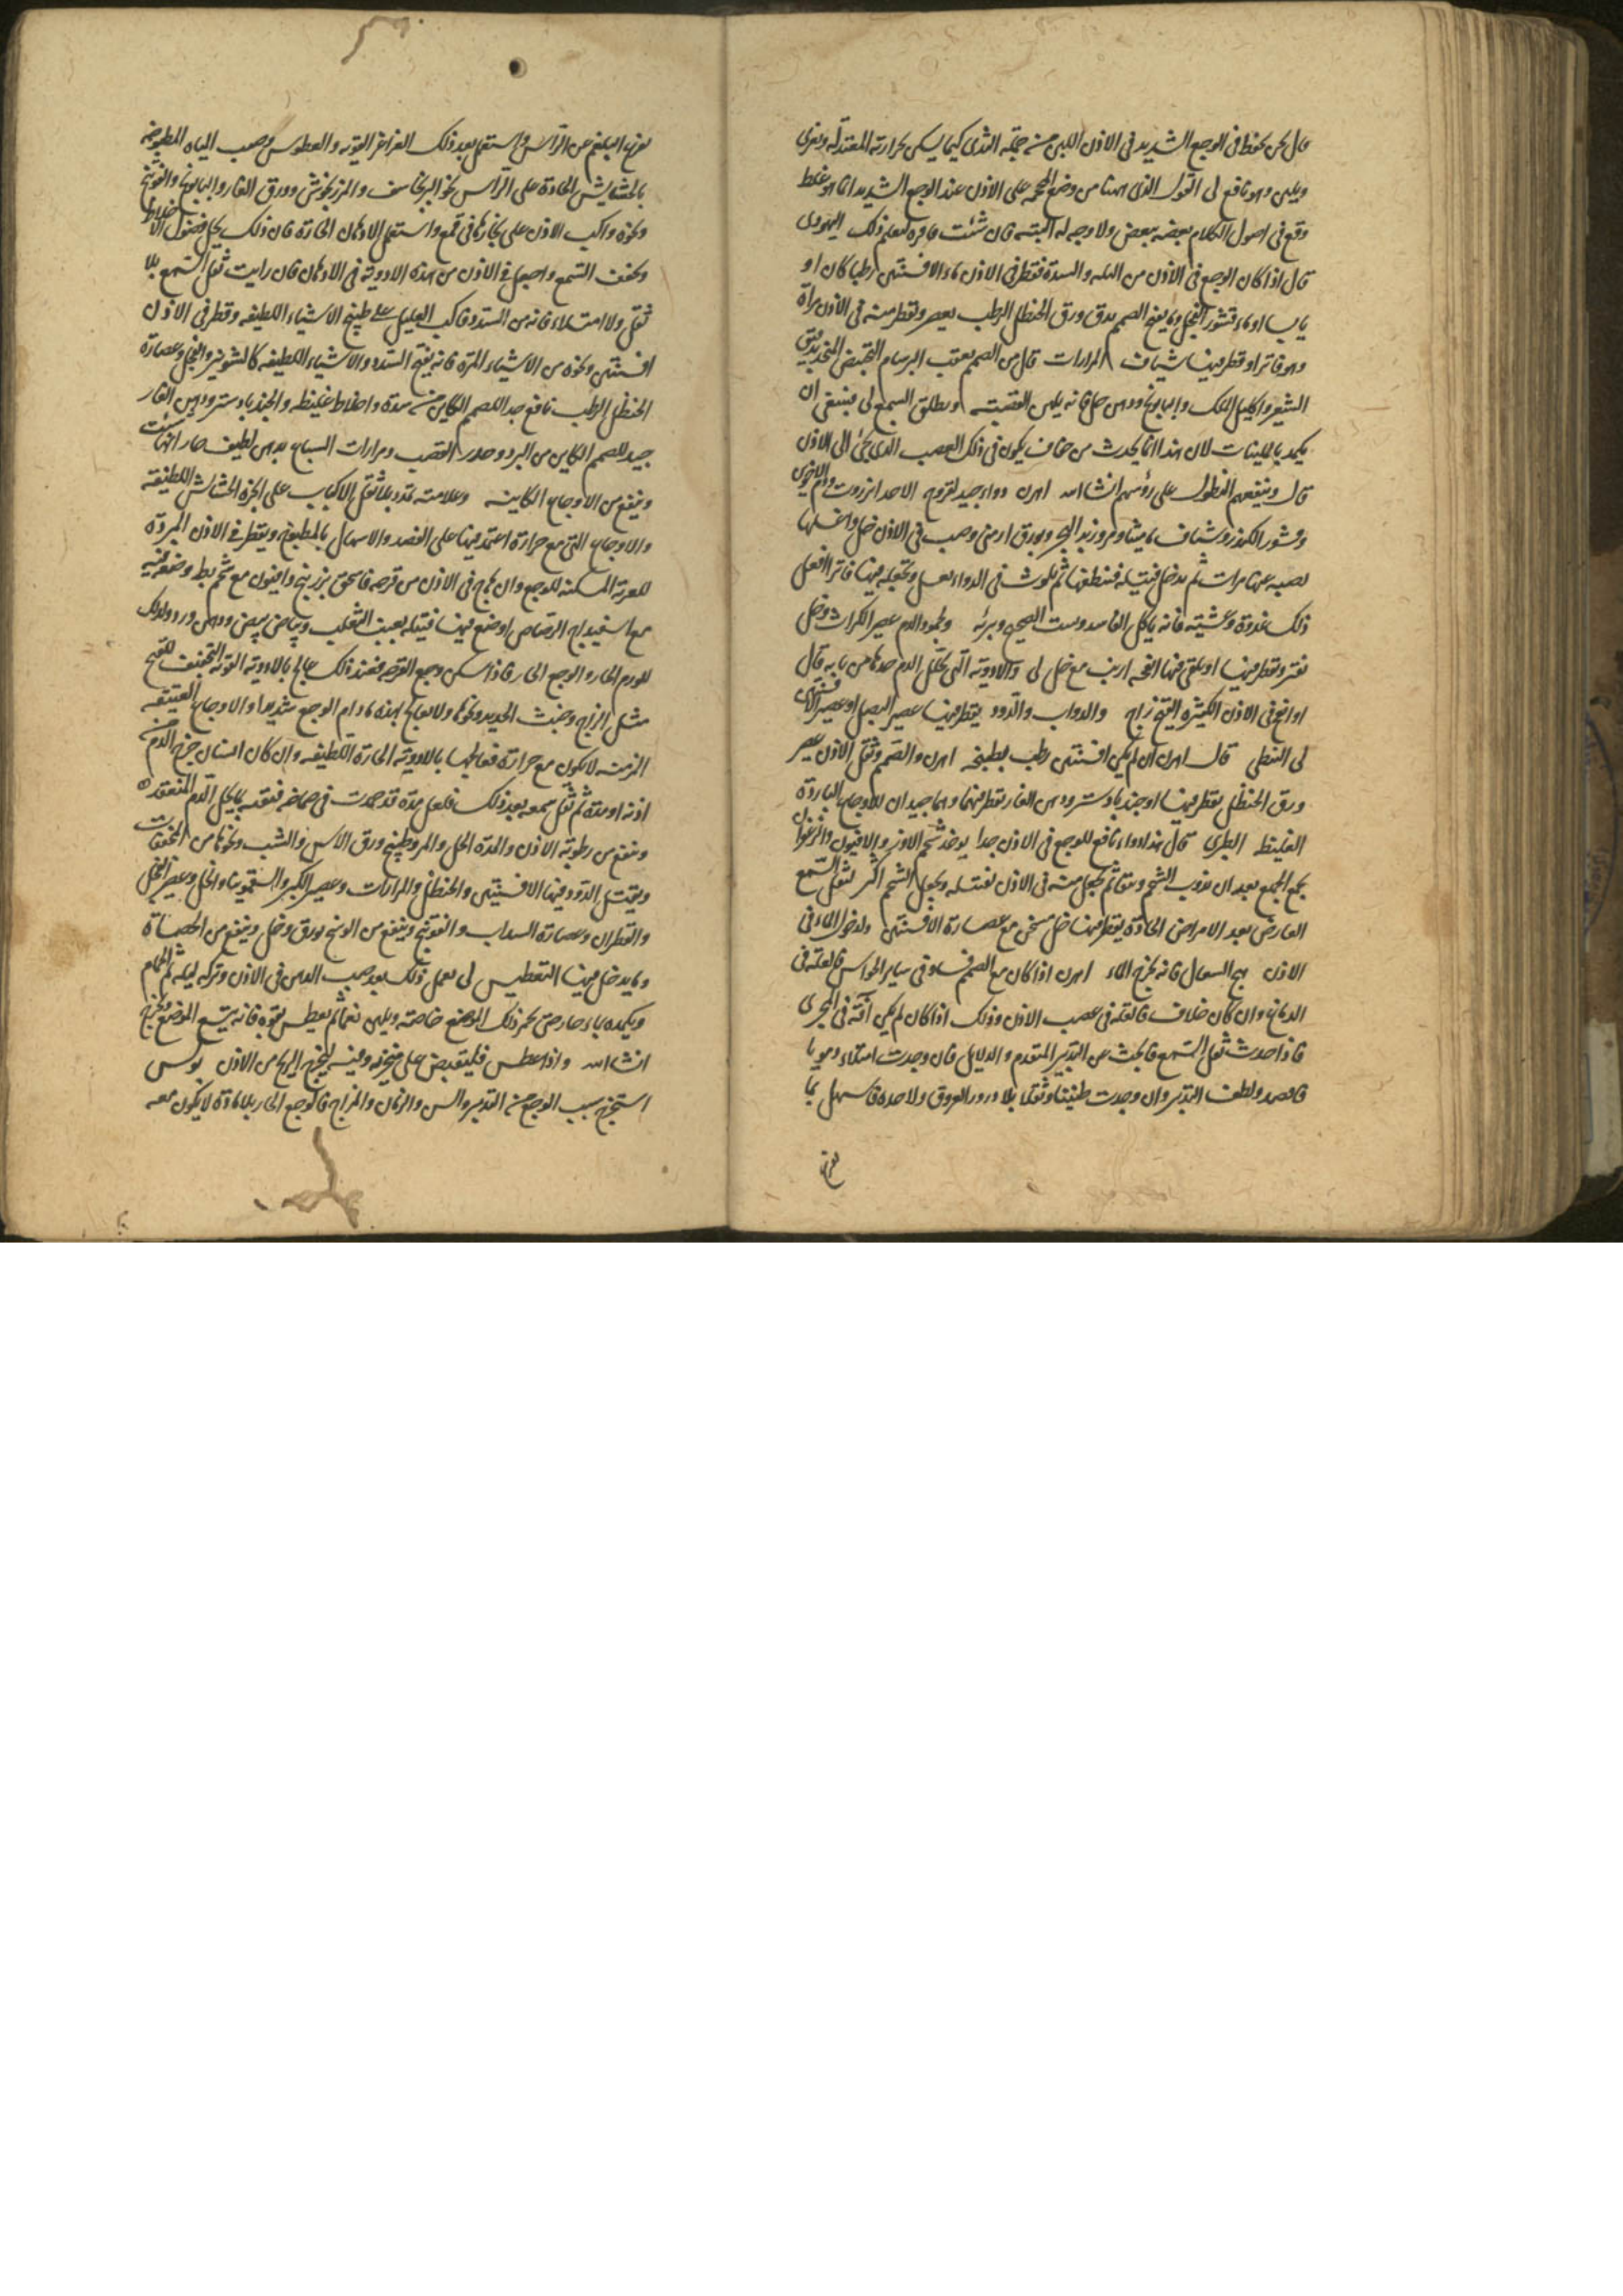 قال نحن نحفظ فى الوجع الشديد فى الاذن اللبن من حلمة الثدى كيما يسكن بحرارته المعتدلة ويغرى
ويلين وهو نافع لى القول الذى ههنا من وضع المحجمة على الاذن عند الوجع الشديد انما هو غلط
وقع فى اصول الكلام بعضه ببعض ولا وجه له البتة فان شئت فاقره لتعلم ذلك اليهودى
قال اذا كان الوجع فى الاذن من البلة والسدة فقطر فى الاذن ماء الافسنتين رطبا كان او
يابسا او ماء قشور الفجل ومما ينفع الصمم يدق ورق الحنظل الرطب يعصر وتقطر منه فى الاذن مرات
وهو فاتر او قطر فيها شياف المرارات قال من الصمم بعقب البرسام التخبيص المتخذ بدقيق
الشعير واكليل الملك والبابونج ودهن حل فانه يلين العصبة ويطلق السمع لى فينبغى ان
يكمد بالملينات لان هذا انما يحدث من جفاف يكون فى ذلك العصب الذى يجئ الى الاذن
قال وينفعهم النطول على رؤسهم انشاالله اهرن دواء جيد لقروح الاذن انزروت ودم الاخوين
وقشور الكندر وشياف ماميثا ومر وزبد البحر وبورق ارمنى وصب فى الاذن خل واغسلها
تصبه عنها مرات ثم يدخل فتيلة فتنظفها ثم تلوث فى الدواء بعسل وتجعله فيها فاترا افعل
ذلك غدوة وعشية فانه ياكل الفاسد وينبت الصحيح ويبرئه ولجمود الدم عصير الكراث وخل
يفتر ويقطر فيها او يلقى فيها انفحة ارنب مع خل لى والادوية التى تحلل الدم خذها من بابه قال
او انفخ فى الاذن الكثيرة القيح زاج والدواب والدود يقطر فيها عصير البصل او عصير الافسنتين
لى النبطى قال اهرن ان لم يكن افسنتين رطب بطبيخه اهرن والصمم وثقل الاذن عصير
ورق الحنظل يقطر فيها او جندبادستر ودهن الغار يقطر فيها وهما جيدان للاوجاع الباردة
الغليظة الطبرى قال هذا دواء نافع للوجع فى الاذن جدا يوخذ شحم الاوز والافيون والزعفران
يجمع الجميع بعد ان يذوب الشحم وينقا ثم يجعل منه فى الاذن بفتيلة ويجعل الشحم اكثر لثقل السمع
العارض بعد الامراض الحادة يقطر فيها خل سخن مع عصارة الافسنتين ولدخول الماء فى
الاذن هج السعال فانه يخرج الماء اهرن اذا كان مع الصمم فساد فى ساير الحواس فالعلة فى
الدماغ وان كان خلاف فالعلة فى عصب الاذن وذلك اذا كان لم يكن آفة فى المجرى
فاذا حدث ثقل السمع فابحث عن التدبير المتقدم والدلايل فان وجدت امتلاء دمويا
فافصد ولطف التدبير وان وجدت طنينا وثقلا بلا درور العروق ولا حدة فاسهل بما
يخرج
يخرج البلغم من الراس واستعمل بعد ذلك الغراغر القوية والعطوس وصب المياه المطبوخة
بالحشايش الحادة على الراس نحو البرنجاسف والمرزنجوش وورق الغار والبابونج والفوتنج
ونحوه واكب الاذن على بخارها فى قمع واستعمل الادهان الحارة فان ذلك يحلل فضول الاخلاط
ويخفف السمع واجعل فى الاذن من هذه الادوية فى الادهان فان رايت ثقل السمع بلا
ثقل ولا امتلاء فانه من السدد فاكب العليل على طبيخ الاشياء اللطيفه وقطر فى الاذن
افسنتين ونحوه من الاشياء المرة فانه يفتح السدد والاشياء اللطيفه كالشونيز والفجل وعصارة
الحنظل الرطب نافع جدا للصمم الكاين من سدة واخلاط غليظة والجندبادستر ودهن الغار
جيد للصمم الكاين من البرد وضرر العصب ومرارات السباع بدهن لطيف حار ايها شئت
وينفع من الاوجاع الكاينة وعلامته تمدد بلا ثقل الاكباب على ابخرة الحشايش اللطيفة
والاوجاع التى مع حرارة اعتمد فيها على الفصد والاسهال بالمطبوخ ويقطر فى الاذن المبردة
المغرية المسكنة للوجع وان هاج فى الاذن من قرحه فاسحق بزربنج وافيون مع شحم بط وضعه فيه
مع اسفيداج الرصاص او ضع فيها فتيلة بعنب الثعلب وبياض بيض ودهن ورد وكذلك
للورم الحار والوجع الحار فاذا سكن وجع القرحه فعند ذلك عالج بالادوية القوية التجفيف للقيح
مثل الزاج وخبث الحديد ونحوها ولا تعالج بهذه ما دام الوجع شديدا والاوجاع العتيقه
المزمنه لا تكون مع حرارة فعالجها بالادوية الحارة اللطيفه وان كان انسان خرج الدم من
اذنه او مدة ثم ثقل سمعه بعد ذلك فلعل مدة قد جمدت فى صماخه فنقه بما يحل الدم المنعقد
وينفع من رطوبة الاذن والمدة الخل والمر وطبيخ ورق الاس والشب ونحوها من المجففات
ويقتل الدود فيها الافسنتين والحنظل والمرارات وعصير الكبر والسقمونيا والخل وعصير الفجل
والقطران وعصارة السداب والفوتنج وينفع من الوسخ بورق وخل وينفع من الحصاة
وما يدخل فيها التعطيس لى يعمل ذلك بعد صب الدهن فى الاذن وتركه ليله ثم الحمام
ويكمده بماء حار حتى يحمر ذلك الموضع خاصته ويلين نعما ثم يعطس بقوة فانه يتسع الموضع ويخرج
انشاالله واذا عطس فليقبض على منخريه وفيه ليخرج الريح من الاذن بولس
استخرج سبب الوجع من التدبير والسن والزمان والمزاج فالوجع الحار بلا مادة لا يكون معه